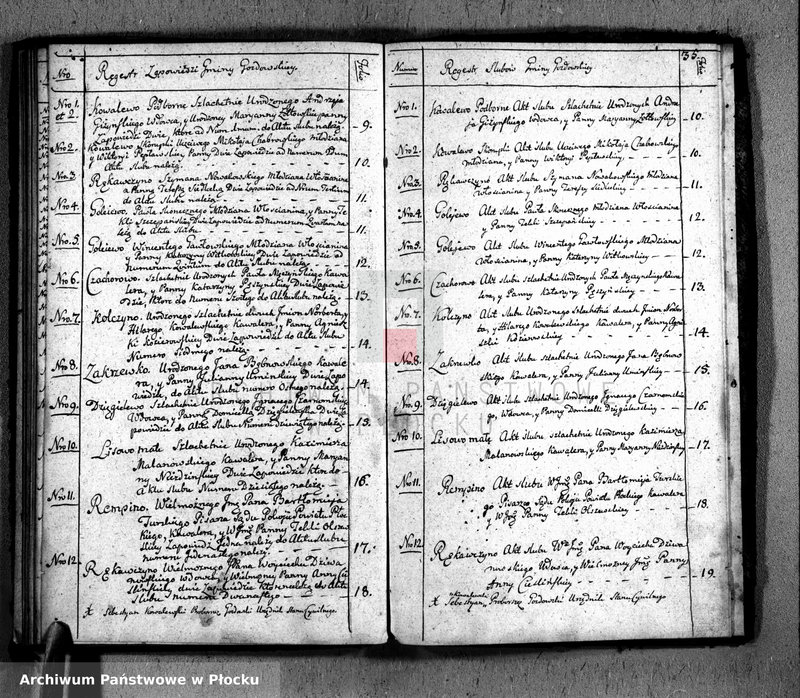 Nro Regestr Zapowiedzi Gminy Gozdowskiey. Folio
Nro 1. Kowalewo Podborne Szlachetnie Urodzonego Andrzeja
et 2. Giżyńskiego Wdowca, y Urodzoney Maryanny Żółtowskiey panny
Zapowiedzi Dwie, które ad Num. 1mum do Aktu Slubu należą. 9.
Nro 2 Kowalewo Skorupki Uczciwego Mikołaja Chabowskiego Młodziana
y Wiktoryi Panny Dwie Zapowiedzi ad Numerum 2um
Aktu Slubu należą 10.
Nro 3 Rękawczyno Szymana Nowakowskiego Młodziana Włościanina
a Panny Teofili Dwie Zapowiedzi ad Num Tertium
do Aktu Slubu należą 11.
Nro 4. Golejewo Pawła Skonecznego Młodziana Włościanina, y Panny Te
kli Szczepańskiey Dwie Zapowiedzie ad numerum
należą do Aktu Slubu 11.
Nro. 5. Golejewo Wincentego Pawłowskiego Młodziana Włościanina
y Panny Katarzyny Witkowskiey Dwie Zapowiedzi ad
Numerum Quintum do Aktu Slubu należą 12.
Nro 6. Czachorowo. Szlachetnie Urodzonych Pawła Myszyńskiego Kawa
lera, y Panny Katarzyny Dwie Zapowie
dzie, które do Numeru Szostego do Aktu Slubu należą. 13.
Nro. 7. Kolczyno. Urodzonego Szlachetnie dwuch Jmion Norberta, y
Hilarego Kowalewskiego Kawalera, y Panny Agniesz
ki Dwie Zapowiedzi do Aktu Slubu
Numero Siodmego należą 14.
Nro 8. Zakrzewko. Urodzonego Jana Bębnowskiego Kawale
ra, y Panny Julianny Umińskiey Dwie Zapo
wiedzi, do Aktu Slubu numero Osmego należą 14.
Nro 9. Dzięgielewo Szlachetnie Urodzonego Ignacego Czarnomskiego
Wdowca, y Panny Domicelli Dzięgielewskiey Dwie Za
powiedzi do Aktu Slubu Numero Dziewiątego należą 15.
Nro 10. Lisowo małe Szlachetnie Urodzonego Kazimierza
Malanowskiego Kawalera, y Panny Maryan
ny Dwie Zapowiedzi które do
Aktu Slubu Numero Dziesiątego należą 16.
Nro 11. Rempino. Wielmożnego Jmć Pana Bartłomieja
Turskiego Pisarza Sądu Pokoju Powiatu Płoc
kiego, Kawalera, y W. Jmć Panny Tekli Olszew
skiey Zapowiedzi Jedna należy do Aktu Slubu
numero Jedenastego należy 17.
Nro 12 Rękawczyno Wielmożnego Jmć Pana Woyciecha Dziwa
nowskiego Wdowca, y Wielmożney Panny Anny Cie
ślińskiey, dwie Zapowiedzie które należą do Aktu
Slubu numero Dwanastego 18.
X Sebestyan Kowalewski Proboszcz Gozdowski Urzędnik Stanu Cywilnego.
35.
Numero Regestr Slubow Gminy Gozdowskiey Folio
Nro 1. Kowalewo Podborne Akt Slubu Szlachetnie Urodzonych Andrze
ja Giżyńskiego Wdowca, y Panny Maryanny Żółtowskiey 10.
Nro 2. Kowalewo Skorupki Akt Slubu Uczciwego Mikołaja Chabowskiego
Młodziana, y Panny Wiktoryi 10.
Nro 3. Rękawczyno Akt Slubu Szymana Nowakowskiego Młodziana
Włościanina y Panny Teofili 11.
Nro 4. Golejewo Akt Slubu Pawła Skonecznego Młodziana Włościanina
y Panny Tekli Szczepańskiey 12.
Nro 5. Golejewo Akt Slubu Wincentego Pawłowskiego Młodziana
Włościanina, y Panny Katarzyny Witkowskiey 12.
Nro 6. Czachorowo Akt Slubu Szlachetnie Urodzonych Pawła Myszyńskiego Kawa
lera, y Panny Katarzyny 13.
Nro. 7. Kolczyno Akt Slubu Urodzonego Szlachetnie dwuch Jmion Norber
ta, y Hilarego Kowalewskiego Kawalera, y Panny Agnie
szki 14.
Nro 8. Zakrzewko Akt Slubu Szlachetnie Urodzonego Jana Bębnow
skiego Kawalera, y Panny Julianny Umińskiey 15.
Nro. 9. Dzięgielewo Akt Slubu Szlachetnie Urodzonego Ignacego Czarnomskie
go, Wdowca, y Panny Domicelli Dzięgielewskiey 16.
Nro 10. Lisowo małe Akt Slubu Szlachetnie Urodzonego Kazimierza
Malanowskiego Kawalera, y Panny Maryanny 17.
Nro 11. Rempino Akt Slubu W. Jmć Pana Bartłomieja Turskie
go Pisarza Sądu Pokoju Powiatu Płockiego Kawalera
y W. Jmć Panny Tekli Olszewskiey 18.
Nro 12 Rękawczyno Akt Slubu W. Jmć Pana Woyciecha Dziwa
nowskiego Wdowca, y Wielmożney Jmć Panny
Anny Cieślińskiey 19.
X Sebestyan Kowalewski Proboszcz Gozdowski Urzędnik Stanu Cywilnego
M PAŃSTWOWE
ŁOCKU
Archiwum Państwowe w Płocku